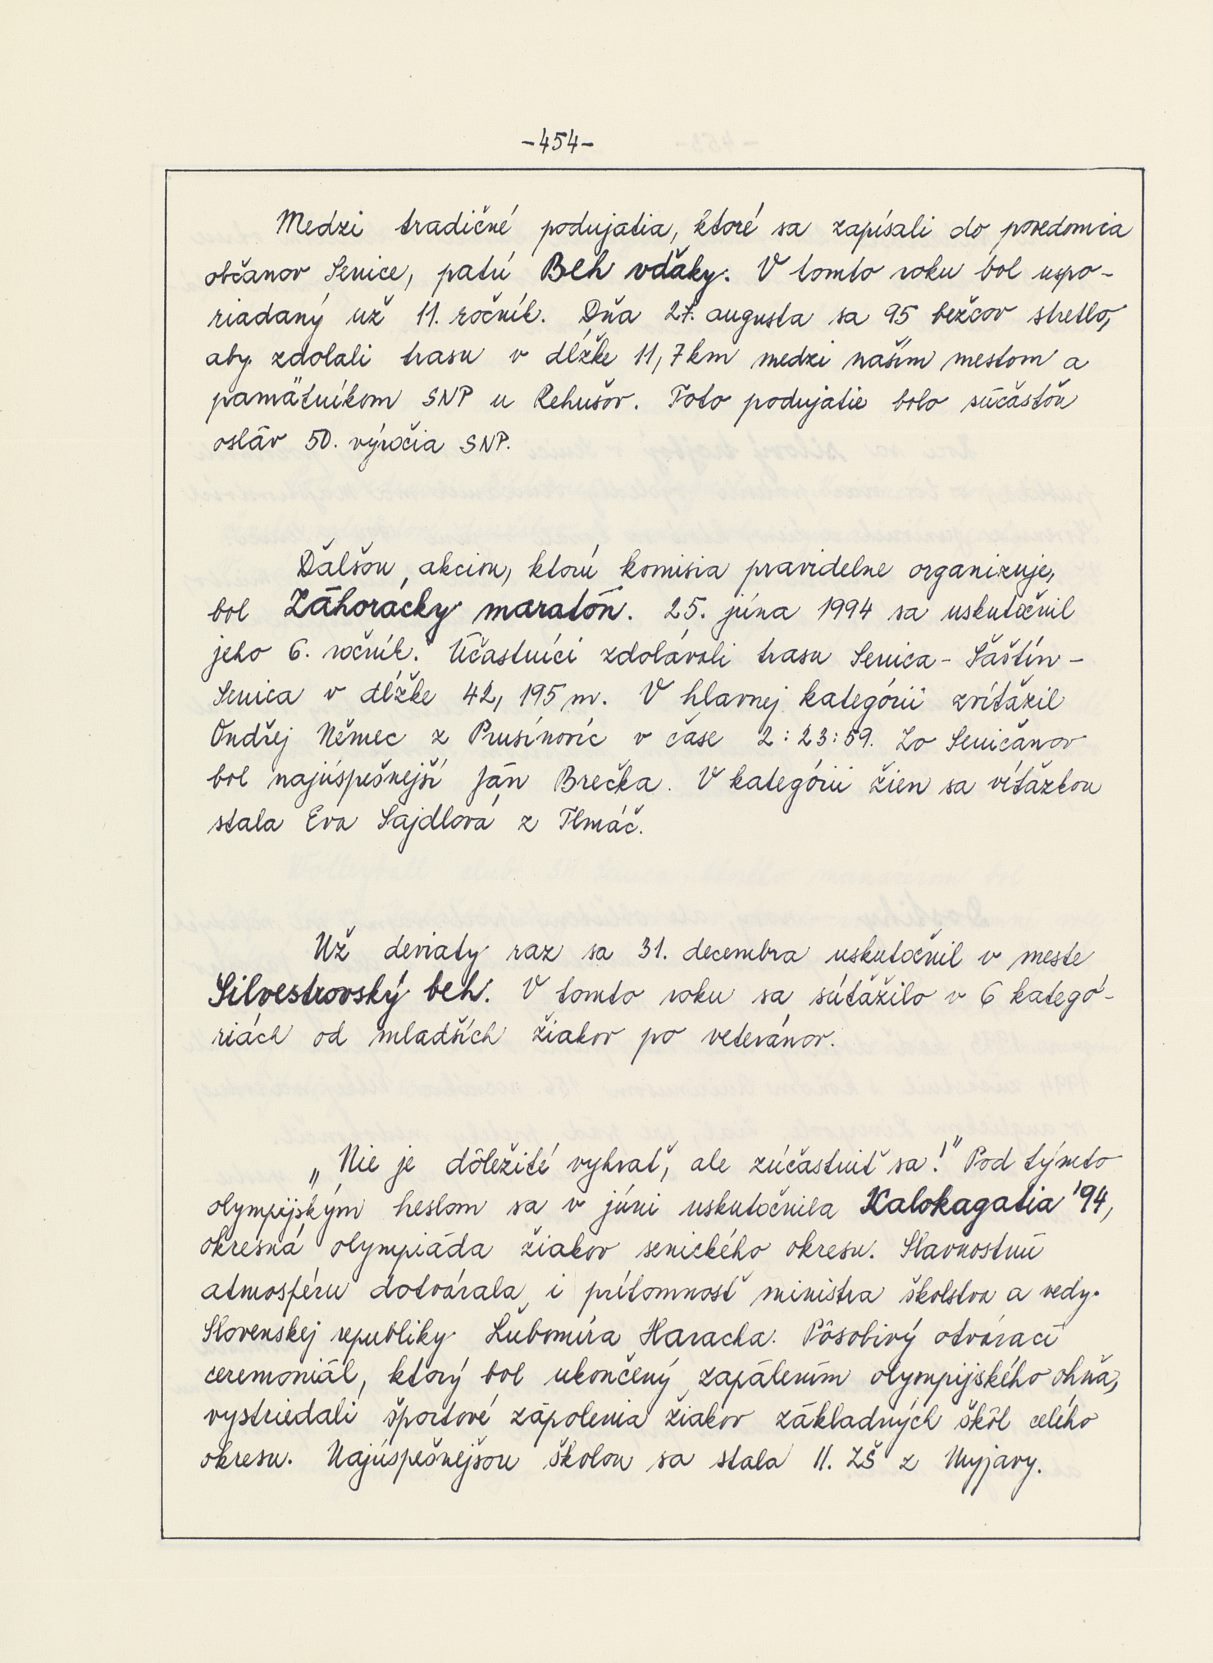 -454-
Medzi tradičné podujatia, ktoré sa zapísali do povedomia
občanov Senice, patrí Beh vďaky. V tomto roku bol uspo-
riadaný už 11. ročník. Dňa 27. augusta sa 95 bežcov stretlo,
aby zdolali trasu v dĺžke 11,7 km medzi naším mestom a
pamätníkom SNP u Rehušov. Toto podujatie bolo súčasťou
osláv 50. výročia SNP.
Ďalšou akciou, ktorú komisia pravidelne organizuje,
bol Záhorácky maratón. 25. júna 1994 sa uskutočnil
jeho 6. ročník. Účastníci zdolávali trasu Senica - Šaštín -
Senica v dĺžke 42,195 m. V hlavnej kategórii zvíťazil
Ondřej Němec z Prusínovíc v čase 2:23:59. Zo Seničanov
bol najúspešnejší Ján Brečka. V kategórii žien sa víťazkou
stala Eva Sajdlová z Tlmáč.
Už deviaty raz sa 31. decembra uskutočnil v meste
Silvestrovský beh. V tomto roku sa súťažilo v 6 kategó-
riách od mladších žiakov po veteránov.
„Nie je dôležité vyhrať, ale zúčastniť sa!" Pod týmto
olympijským heslom sa v júni uskutočnila Kalokagatia '94,
okresná olympiáda žiakov senického okresu. Slavnostnú
atmosféru dotvárala i prítomnosť ministra školstva a vedy
Slovenskej republiky Ľubomíra Haracha. Pôsobivý otvárací
ceremoniál, ktorý bol ukončený zapálením olympijského ohňa,
vystriedali športové zápolenia žiakov základných škôl celého
okresu. Najúspešnejšou školou sa stala II. ZŠ z Myjavy.